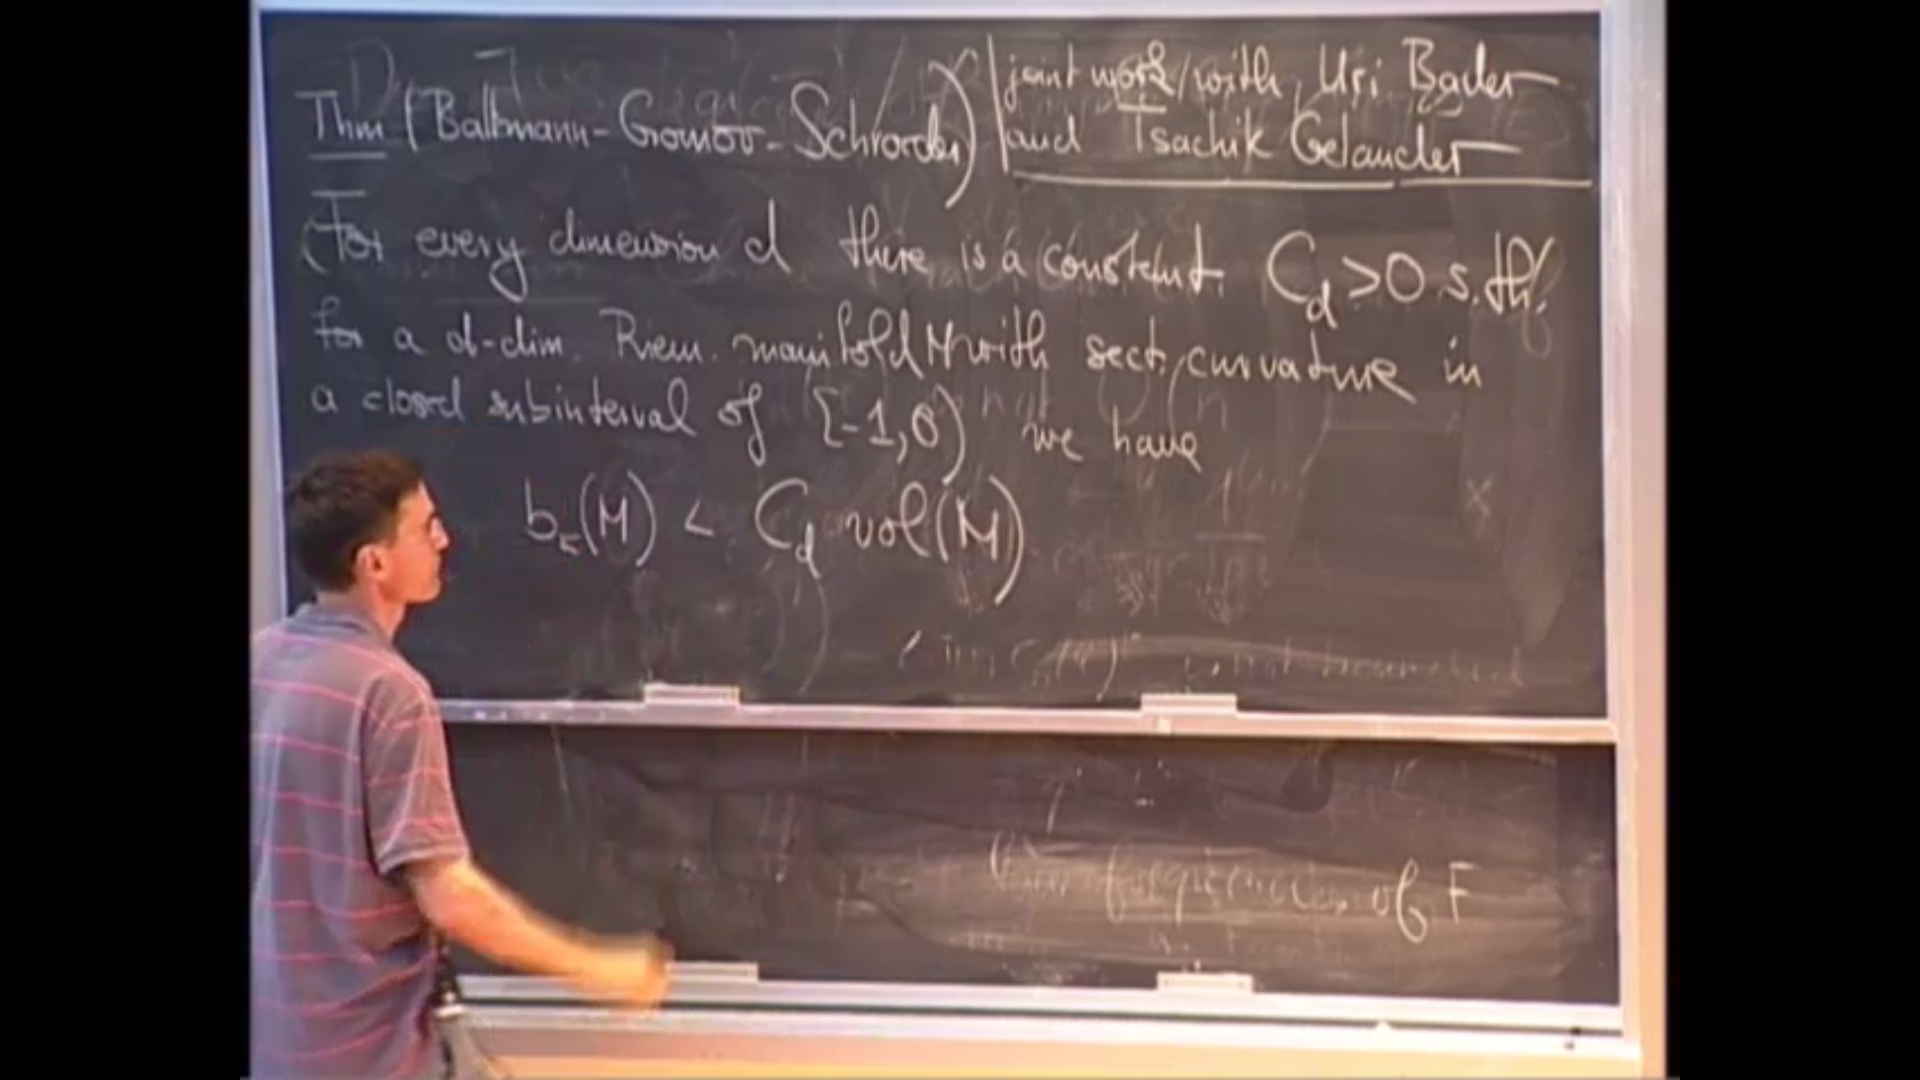 Thm (Ballmann-Gromov-Schroeder)
joint work with Uri Bader
and Tsachik Gelander
For every dimension d there is a constant C_d > 0 s.th.
for a d-dim. Riem. manifold M with sect. curvature in
a closed subinterval of [-1,0) we have
b_k(M) < C_d vol(M)
of F